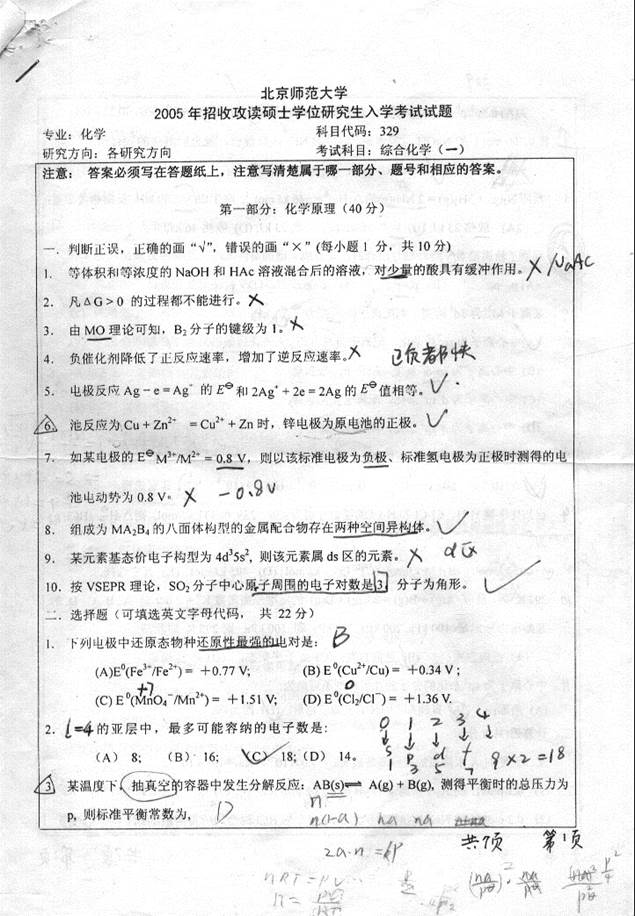 北京师范大学
2005 年招收攻读硕士学位研究生入学考试试题
专业：化学 科目代码：329
研究方向：各研究方向 考试科目：综合化学（一）
注意： 答案必须写在答题纸上，注意写清楚属于哪一部分、题号和相应的答案。
第一部分：化学原理（40 分）
一．判断正误，正确的画“√”，错误的画“×”(每小题 1 分，共 10 分)
1. 等体积和等浓度的 NaOH 和 HAc 溶液混合后的溶液，对少量的酸具有缓冲作用。 × NaAC
2. 凡ΔG＞0 的过程都不能进行。 ×
3. 由 MO 理论可知，B₂分子的键级为 1。 ×
4. 负催化剂降低了正反应速率，增加了逆反应速率。 ×
5. 电极反应 Ag－e＝Ag⁺ 的 E⊖ 和 2Ag⁺＋2e＝2Ag 的 E⊖ 值相等。 √
6. 池反应为 Cu＋Zn²⁺ ＝Cu²⁺＋Zn 时，锌电极为原电池的正极。 √
7. 如某电极的 E⊖ M³⁺/M²⁺ = 0.8 V，则以该标准电极为负极、标准氢电极为正极时测得的电
池电动势为 0.8 V。 × －0.8v
8. 组成为 MA₂B₄ 的八面体构型的金属配合物存在两种空间异构体。 √
9. 某元素基态价电子构型为 4d³5s²，则该元素属 ds 区的元素。 × d区
10. 按 VSEPR 理论，SO₂分子中心原子周围的电子对数是 3，分子为角形。 √
二．选择题（可填选英文字母代码， 共 22 分）
1. 下列电极中还原态物种还原性最强的电对是： B
(A)E⁰(Fe³⁺/Fe²⁺)= ＋0.77 V; (B) E⁰(Cu²⁺/Cu)= ＋0.34 V;
+7 0
(C) E⁰(MnO₄⁻/Mn²⁺)= ＋1.51 V; (D) E⁰(Cl₂/Cl⁻)= ＋1.36 V.
0 1 2 3 4
2. l=4 的亚层中，最多可能容纳的电子数是： s p d f
1 3 5 7 9×2=18
（A） 8; （B） 16; （C） 18; （D） 14。
3. 某温度下，抽真空的容器中发生分解反应：AB(s)⇌ A(g)＋B(g), 测得平衡时的总压力为
p, 则标准平衡常数为, D
n
n(1-α) nα nα
共7页 第1页